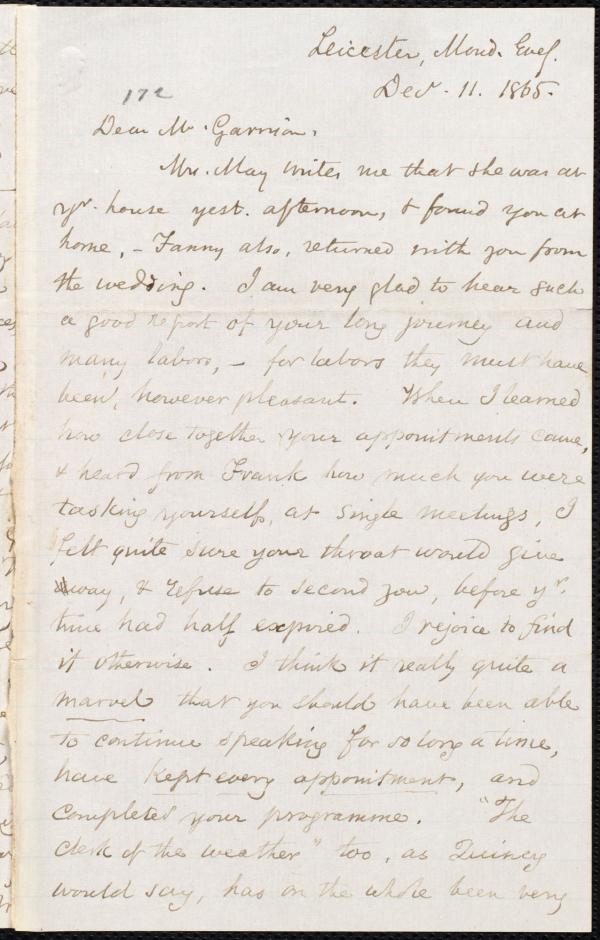 Leicester, Mond. Eveg.
Decr. 11. 1865.
172
Dear Mr. Garrison,
Mrs. May writes me that she was at
yr. house yest. afternoon, & found you at
home, – Fanny also, returned with you from
the wedding. I am very glad to hear such
a good report of your long journey and
many labors, – for labors they must have
been, however pleasant. When I learned
how close together your appointments came,
& heard from Frank how much you were
tasking yourself, at single meetings, I
felt quite sure your throat would give
away, & refuse to second you, before yr.
time had half expired. I rejoice to find
it otherwise. I think it really quite a
marvel that you should have been able
to continue speaking for so long a time,
have kept every appointment, and
completed your programme. "The
clerk of the weather" too, as Quincy
would say, has on the whole been very